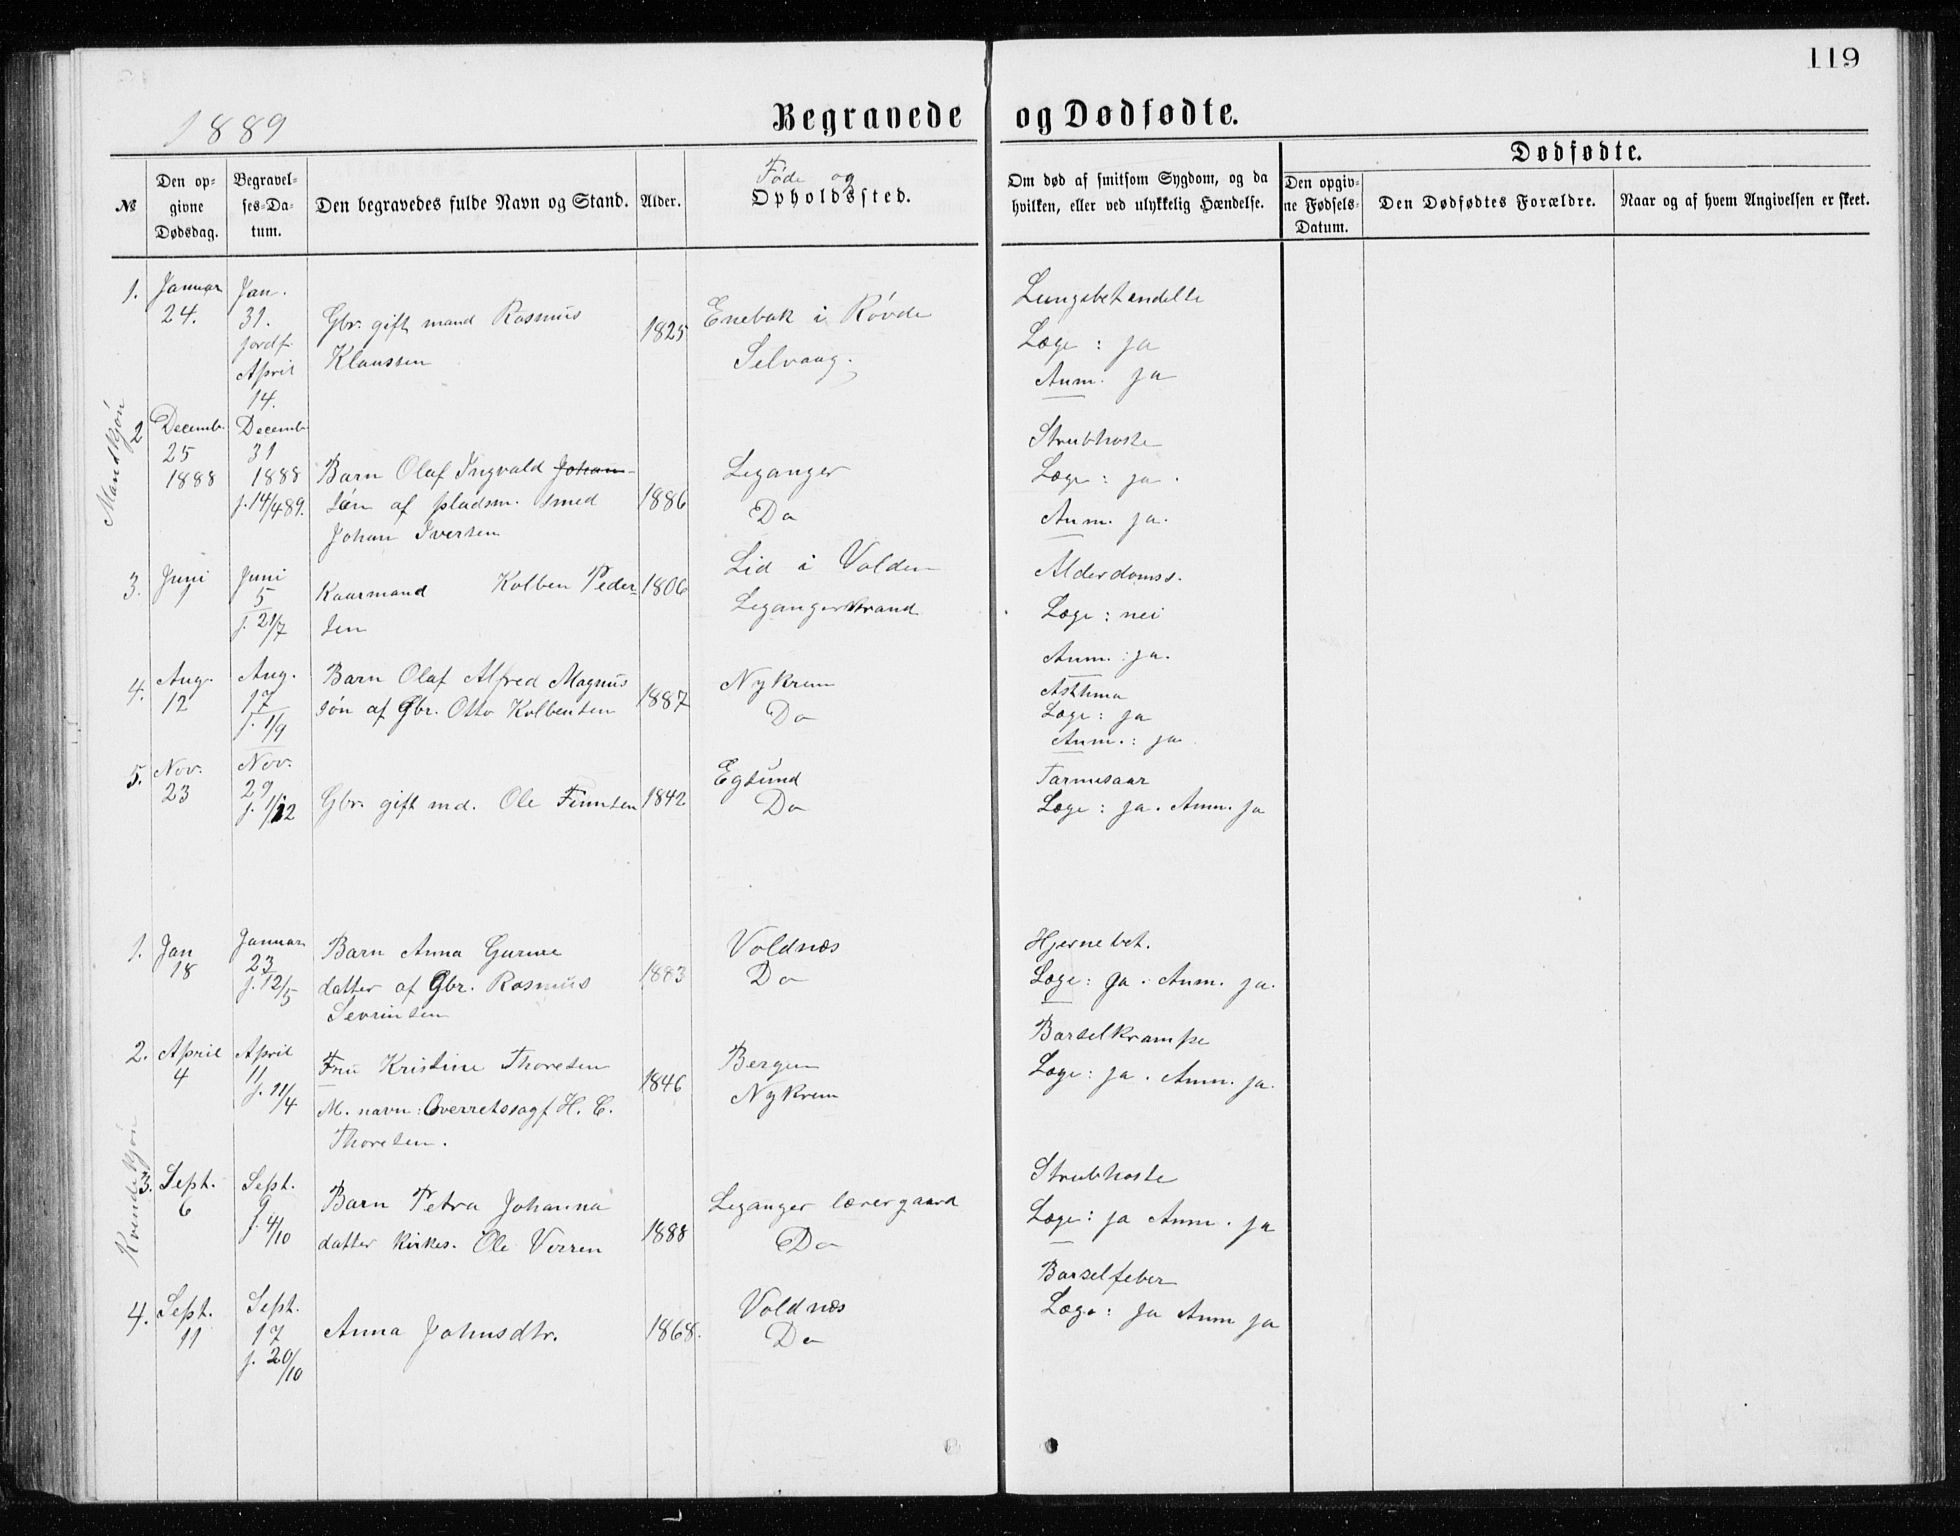 119
1889
Begravede og Dødfødte.
Dødfødte.
№
Den opgivne Dødsdag.
Begravelses-Datum.
Den begravedes fulde Navn og Stand.
Alder.
Føde og
Opholdssted.
Om død af smitsom Sygdom, og da
hvilken, eller ved ulykkelig Hændelse.
Den opgivne Fødsels-Datum.
Den Dødfødtes Forældre.
Naar og af hvem Angivelsen er skeet.
Mandkjøn
1. Januar 24. Jan. 31. jordf. April 14.
Gbr. gift mand Rasmus
Klaussen
1825
Enebak i Røvde
Selvaag.
Lungebetændelse
Læge : ja
Anm. ja
2 Decemb. 25 1888 Decemb. 31 1888 j. 14/4 89.
Barn Olaf Ingvald Johan-
søn af pladsm. smed
Johan Iversen
1886
Leganger
Do
Strubhoste
Læge : ja.
Anm. ja.
3. Juni Juni 5 j. 21/7
Kaarmand Kolben Peder-
sen
1806
Lid i Volden
Legangerstrand
Alderdomss.
Læge : nei
Anm. : ja.
4. Aug. 12 Aug. 17 j. 1/9
Barn Olaf Alfred Magnus
søn af Gbr. Otto Kolbensen
1887
Nykrem
Do
Asthma
Læge : ja
Anm. : ja
5. Nov. 23 Nov. 29 j. 1/12
Gbr. gift md. Ole Finnsen
1842
Egsund
Do
Tarmesaar
Læge : ja. Anm. ja
Kvindekjøn
1. Jan 18 Januar 23 j. 12/5
Barn Anna Gurine
datter af Gbr. Rasmus
Sevrinsen
1883
Voldnæs
Do
Hjernebet.
Læge : ja. Anm. ja.
2. April 4 April 11 j. 11/4
Fru Kristine Thoresen
M. navn : Overretssagf. H. C.
Thoresen.
1846
Bergen
Nykrem
Barselkrampe
Læge : ja. Anm. ja.
3. Sept. 6 Sept. 9 j. 4/10
Barn Petra Johanna
datter kirkes. Ole Verren
1888
Leganger lærergaard
Do
Strubhoste
Læge : ja Anm. ja
4. Sept. 11 Sept. 17 j. 20/10
Anna Johnsdtr.
1868.
Voldnæs
Do
Barselfeber
Læge : ja Anm ja